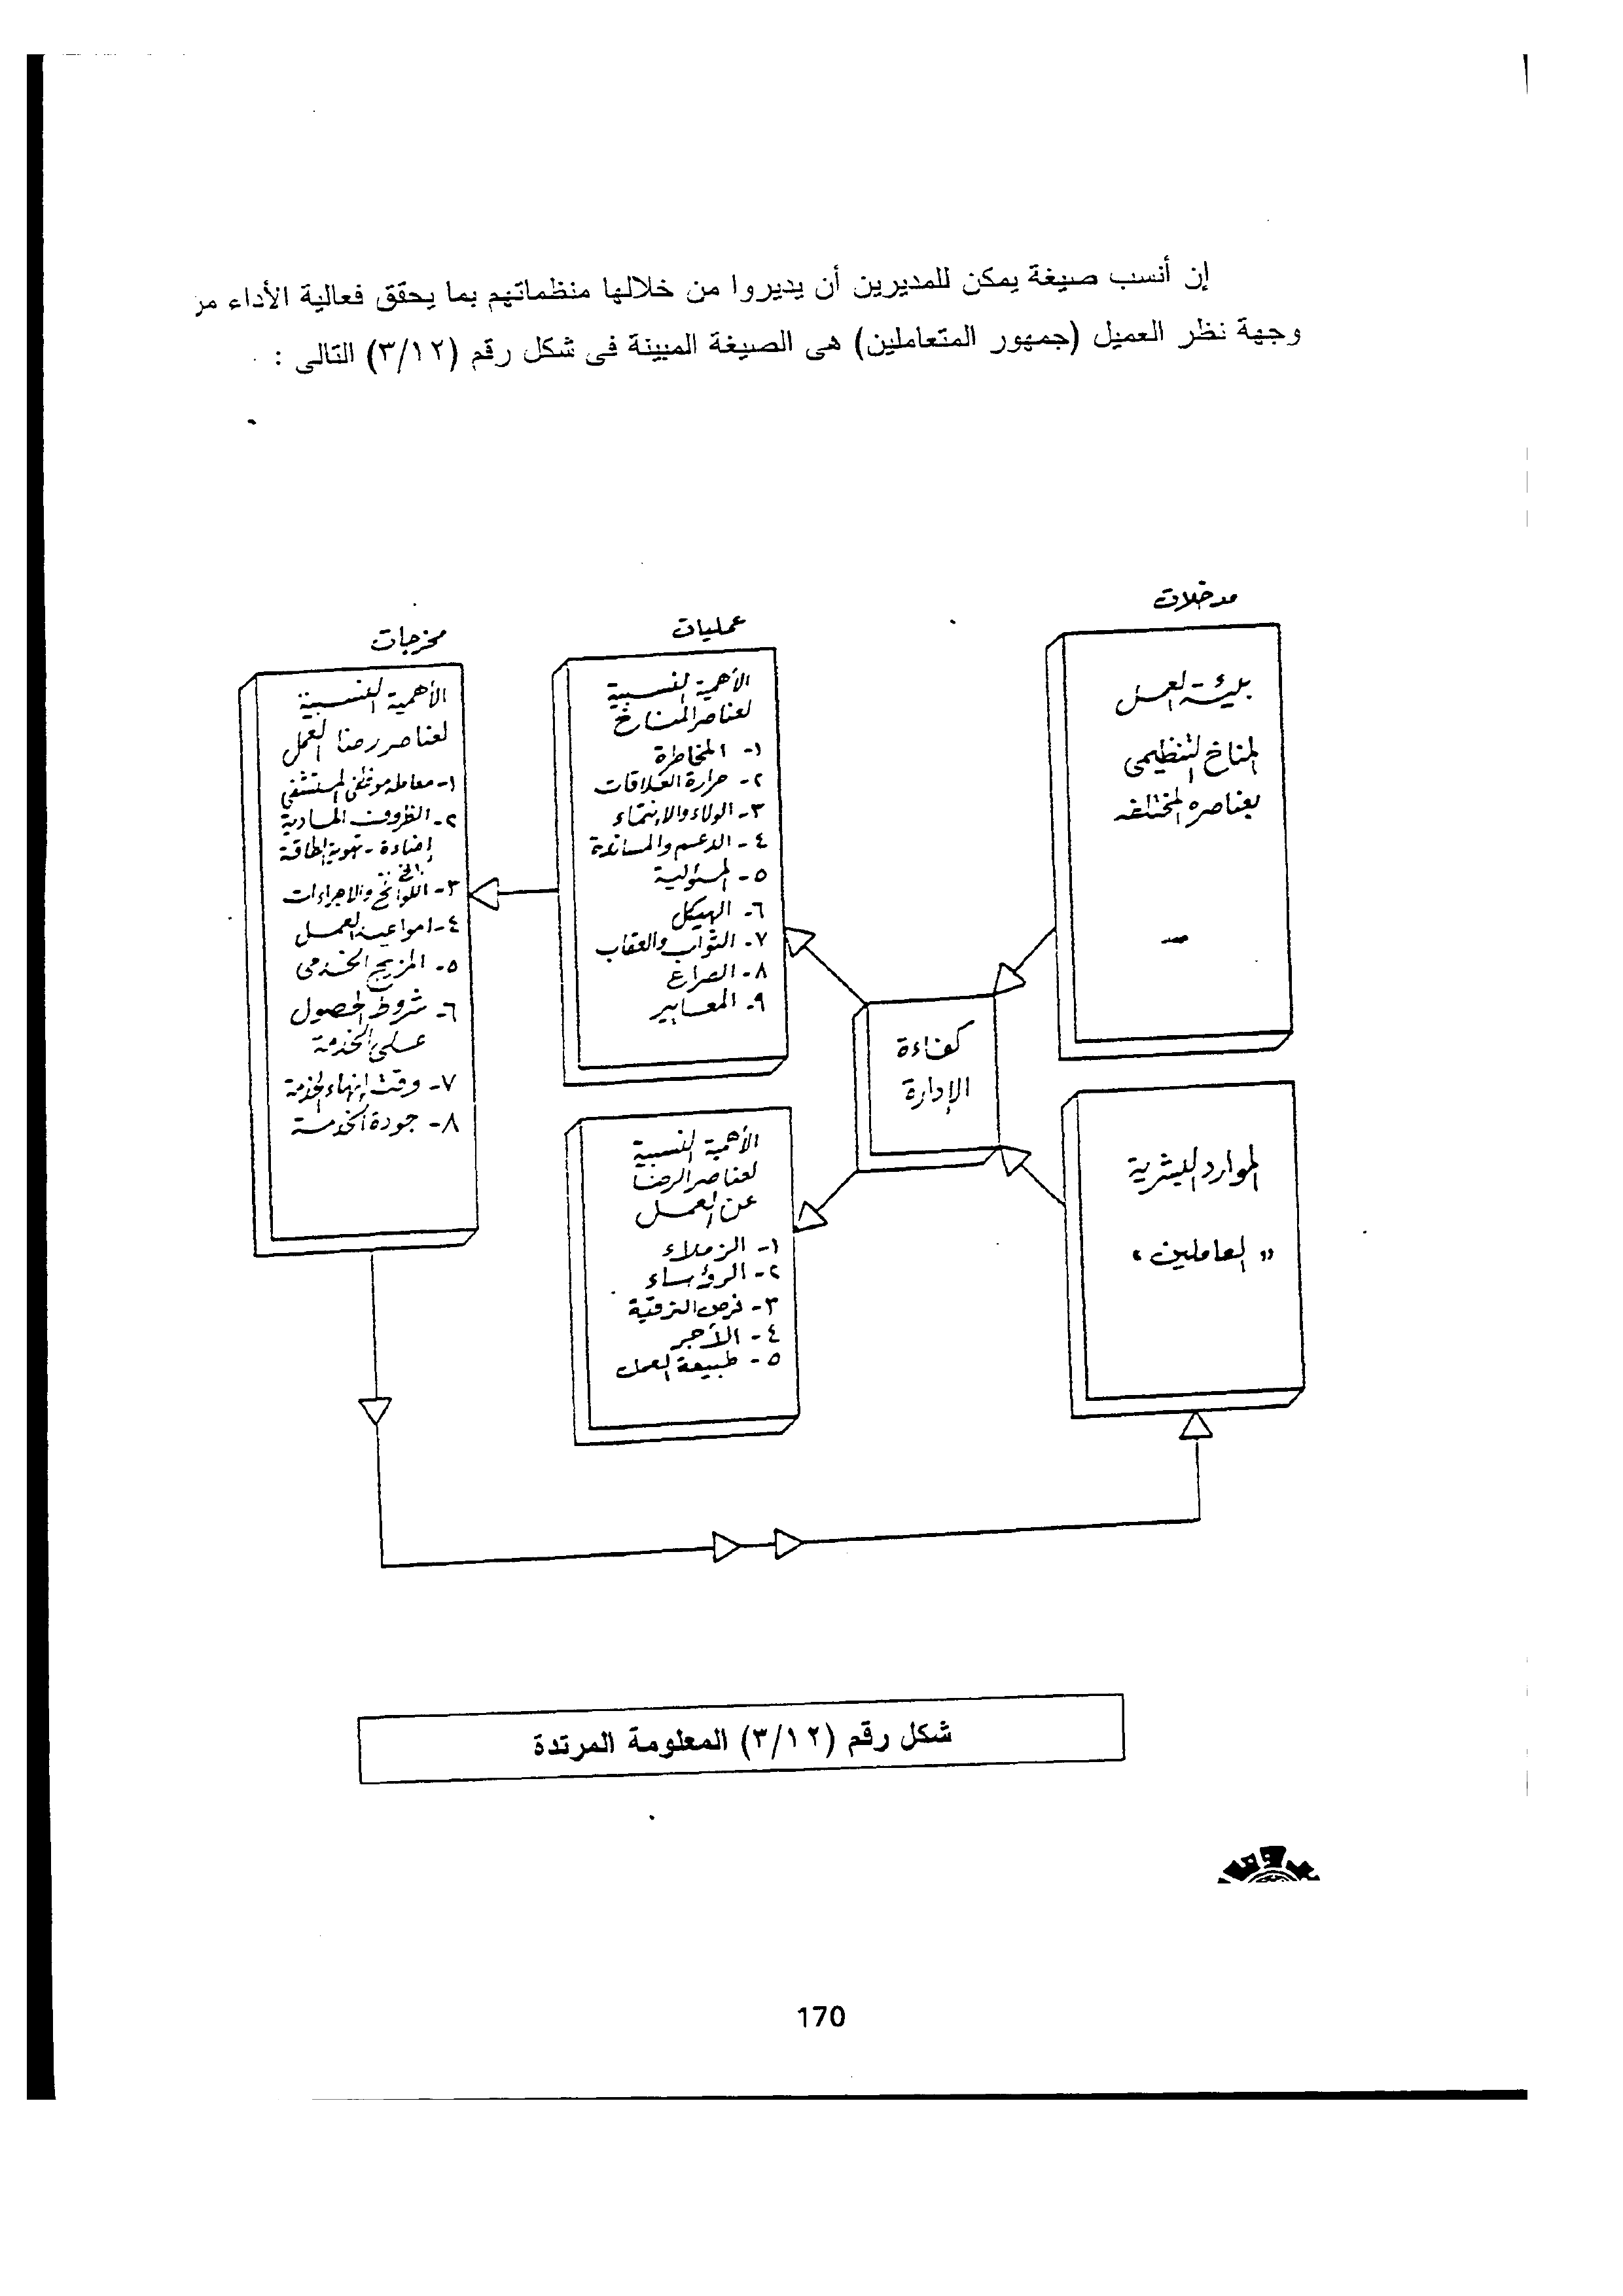 إن أنسب صيغة يمكن للمديرين أن يديروا من خلالها منظماتهم بما يحقق فعالية الأداء من
وجهة نظر العميل (جمهور المتعاملين) هى الصيغة المبينة فى شكل رقم (٣/١٢) التالى :
مدخلات
بيئة العمل
المناخ التنظيمى
بعناصره المختلفه
الموارد البشرية
" العاملين "
كفاءة
الإدارة
عمليات
الأهمية النسبية
لعناصر المناخ
١- المخاطرة
٢- حرارة العلاقات
٣- الولاء والانتماء
٤- الدعم والمساندة
٥- المسئولية
٦- الهيكل
٧- الثواب والعقاب
٨- الصراع
٩- المعايير
الأهمية النسبية
لعناصر الرضا
عن العمل
١- الزملاء
٢- الرؤساء
٣- فرص الترقية
٤- الأجر
٥- طبيعة العمل
مخرجات
الأهمية النسبية
لعناصر رضا العمل
١- معاملة موظفى المستشفى
٢- الظروف المادية
إضاءة - تهوية
٣- اللوائح والاجراءات
٤- مواعيد العمل
٥- المزيج الخدمى
٦- شروط الحصول
على الخدمة
٧- وقت إنهاء الخدمة
٨- جودة الخدمة
شكل رقم (٣/١٢) المعلومة المرتدة
170